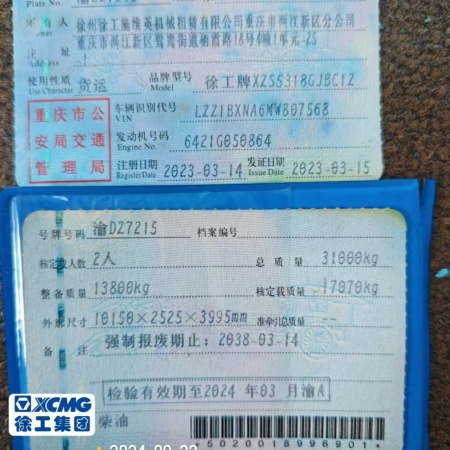 徐州徐工施维英机械租赁有限公司重庆市两江新区分公司
重庆市两江新区鸳鸯街道栖霞路18号4幢1单元-2S
使用性质 货运 品牌型号 徐工牌XZS5318GJBC1Z
Use Character Model
重庆市公
安局交通
管理局
车辆识别代号 LZZ1BXNA6MW807568
VIN
发动机号码 6421G050864
Engine No.
注册日期 2023-03-14 发证日期 2023-03-15
Register Date Issue Date
号牌号码 渝DZ7215 档案编号
核定载人数 2人 总质量 31000kg
整备质量 13800kg 核定载质量 17070kg
外廓尺寸 10150×2525×3995毫米 准牵引总质量 --
备注 强制报废期止: 2038-03-14
检验有效期至2024年03月渝A
柴油
*5020018996901*
XCMG
徐工集团